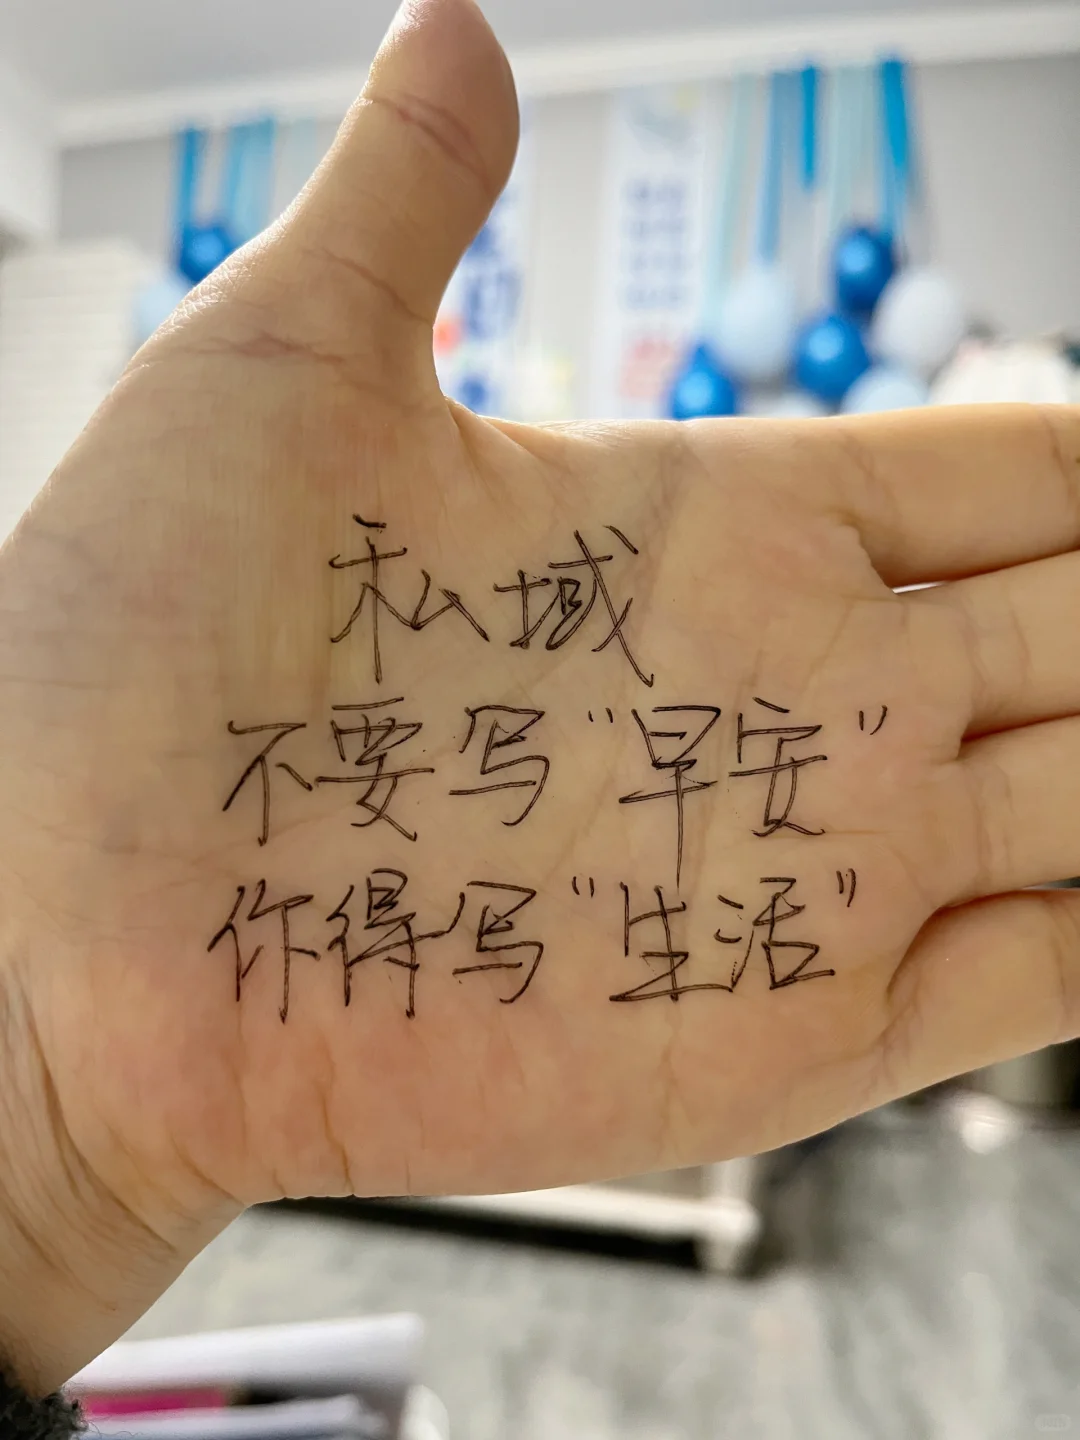 私域
不要写“早安”
你得写“生活”